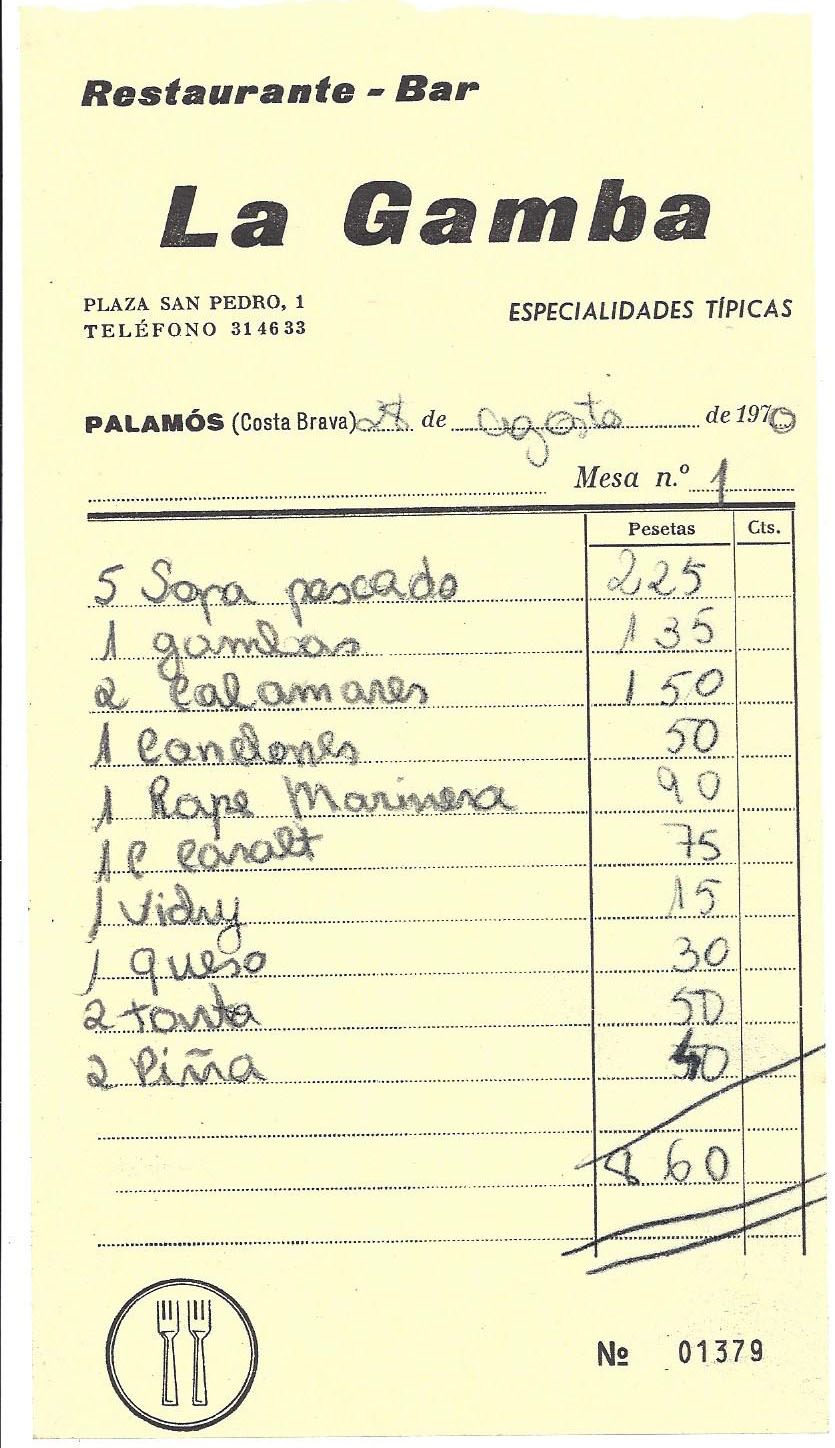 Restaurante - Bar
La Gamba
PLAZA SAN PEDRO, 1
TELÉFONO 31 46 33
ESPECIALIDADES TÍPICAS
PALAMÓS (Costa Brava) de agosto de 1970
Mesa n.º 1
Pesetas Cts.
5 Sopa pescado 225
1 gambas 135
2 Calamares 150
1 Canelones 50
1 Rape Marinera 90
1 C Casalt 75
1 Vichy 15
1 queso 30
2 tarta 50
2 Piña 40
860
Nº 01379